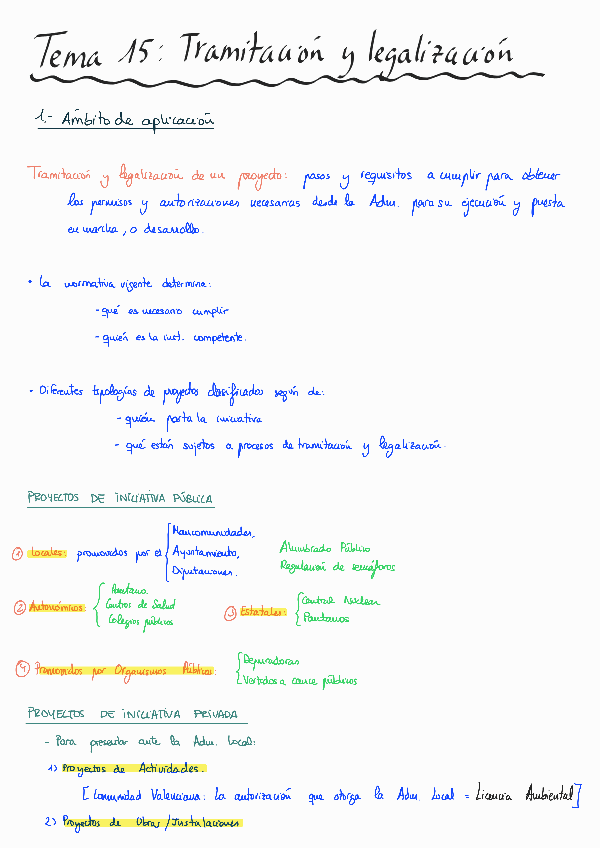 Tema 15: Tramitación y legalización
1.- Ámbito de aplicación
Tramitación y legalización de un proyecto: pasos y requisitos a cumplir para obtener
los permisos y autorizaciones necesarias desde la Adm. para su ejecución y puesta
en marcha, o desarrollo.
• La normativa vigente determina:
- qué es necesario cumplir
- quién es la inst. competente.
• Diferentes tipologías de proyectos clasificados según de:
- quién parta la iniciativa
- qué están sujetos a procesos de tramitación y legalización.
PROYECTOS DE INICIATIVA PÚBLICA
① Locales: promovidos por el { Mancomunidades,
Ayuntamiento,
Diputaciones.
Alumbrado Público
Regulación de semáforos
② Autonómicos: {
Centros de Salud
Colegios públicos
③ Estatales: { Central Nuclear
Pantanos
④ Promovidos por Organismos Públicos: { Depuradoras
Vertidos a cauce públicos
PROYECTOS DE INICIATIVA PRIVADA
- Para presentar ante la Adm. Local:
1) Proyectos de Actividades.
[Comunidad Valenciana: La autorización que otorga la Adm. Local = Licencia Ambiental]
2) Proyectos de Obras/Instalaciones